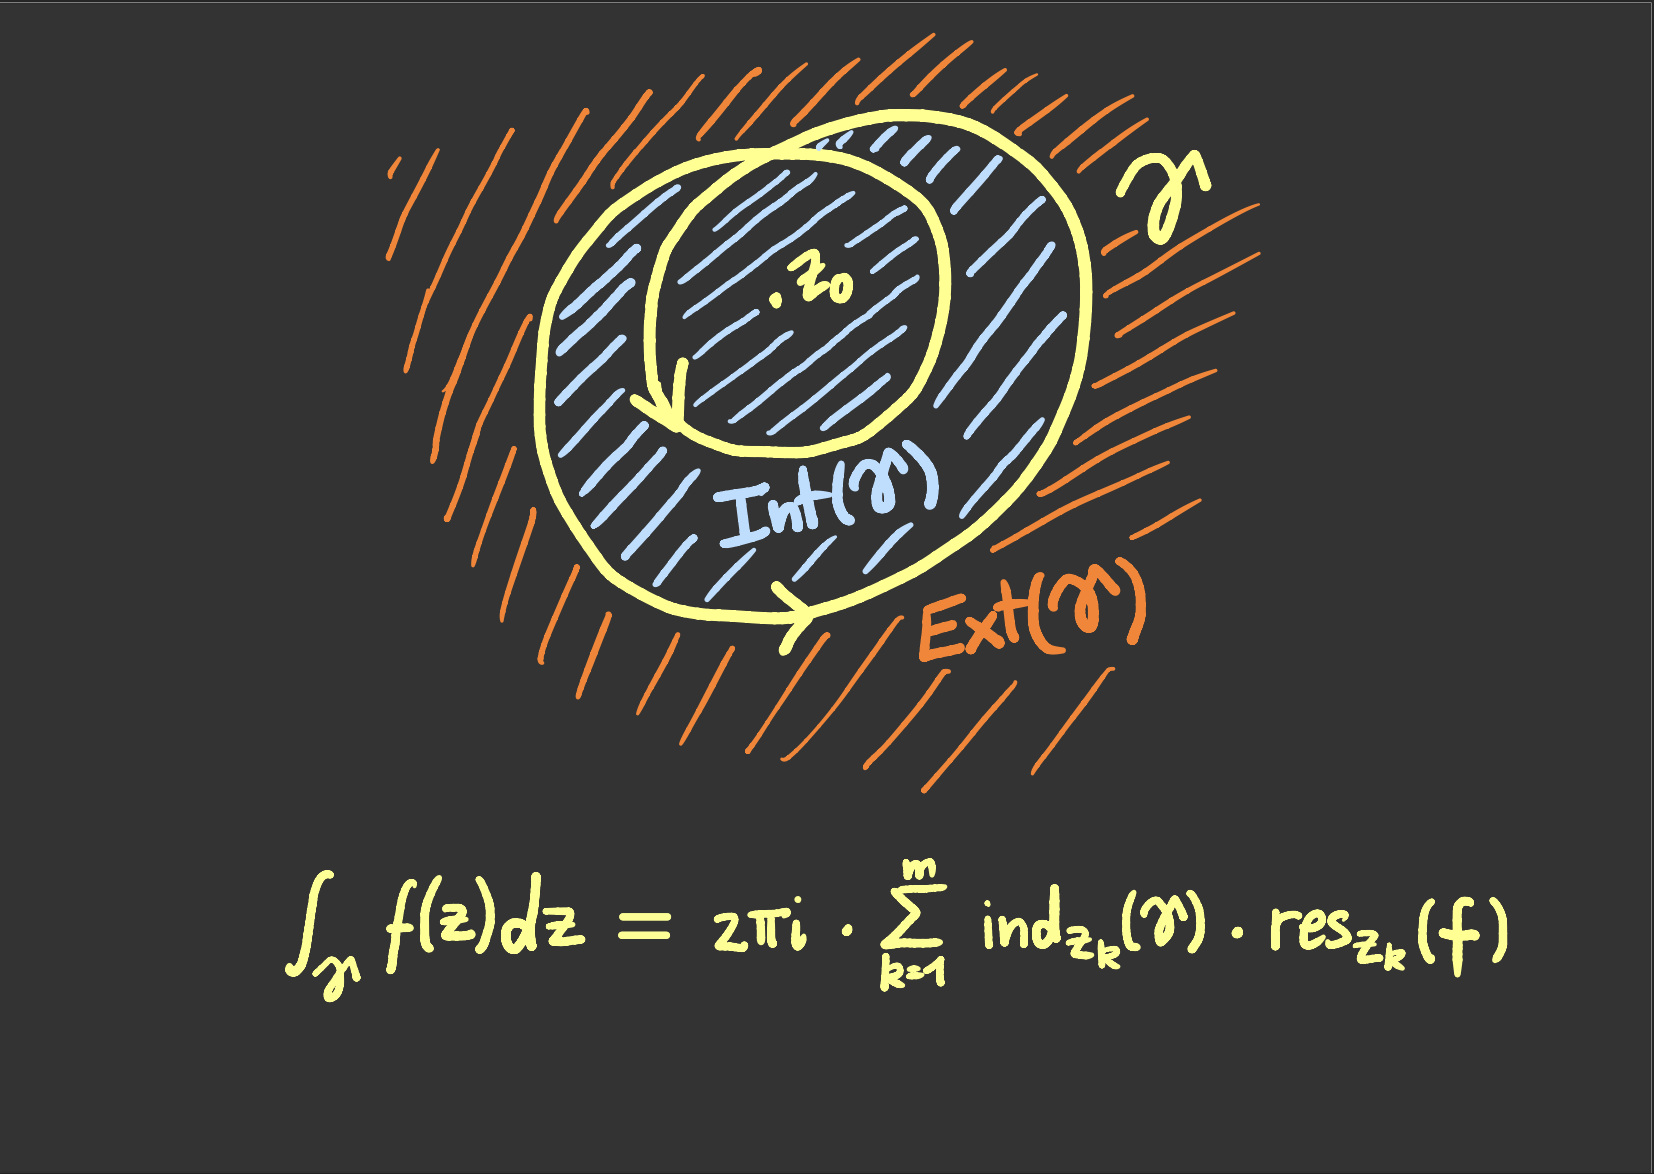 γ
. z₀
Int(γ)
Ext(γ)
∫_γ f(z)dz = 2πi · ∑_{k=1}^{m} ind_{z_k}(γ) · res_{z_k}(f)